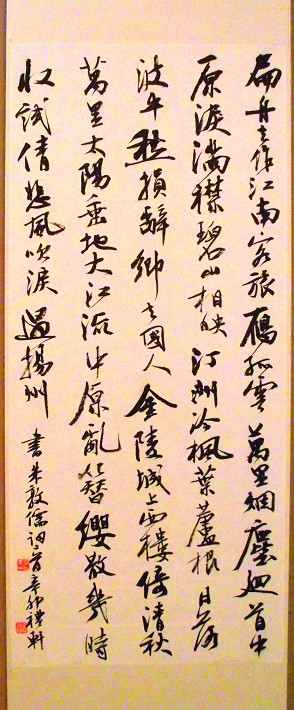 扁舟去作江南客旅鴈孤雲萬里烟塵迴首中
原淚滿襟碧山相映汀洲冷楓葉蘆根日落
波平愁損辭鄉去國人金陵城上西樓倚清秋
萬里夕陽垂地大江流中原亂簪纓散幾時
收試倩悲風吹淚過揚州
書朱敦儒詞二首辛卯禮軒